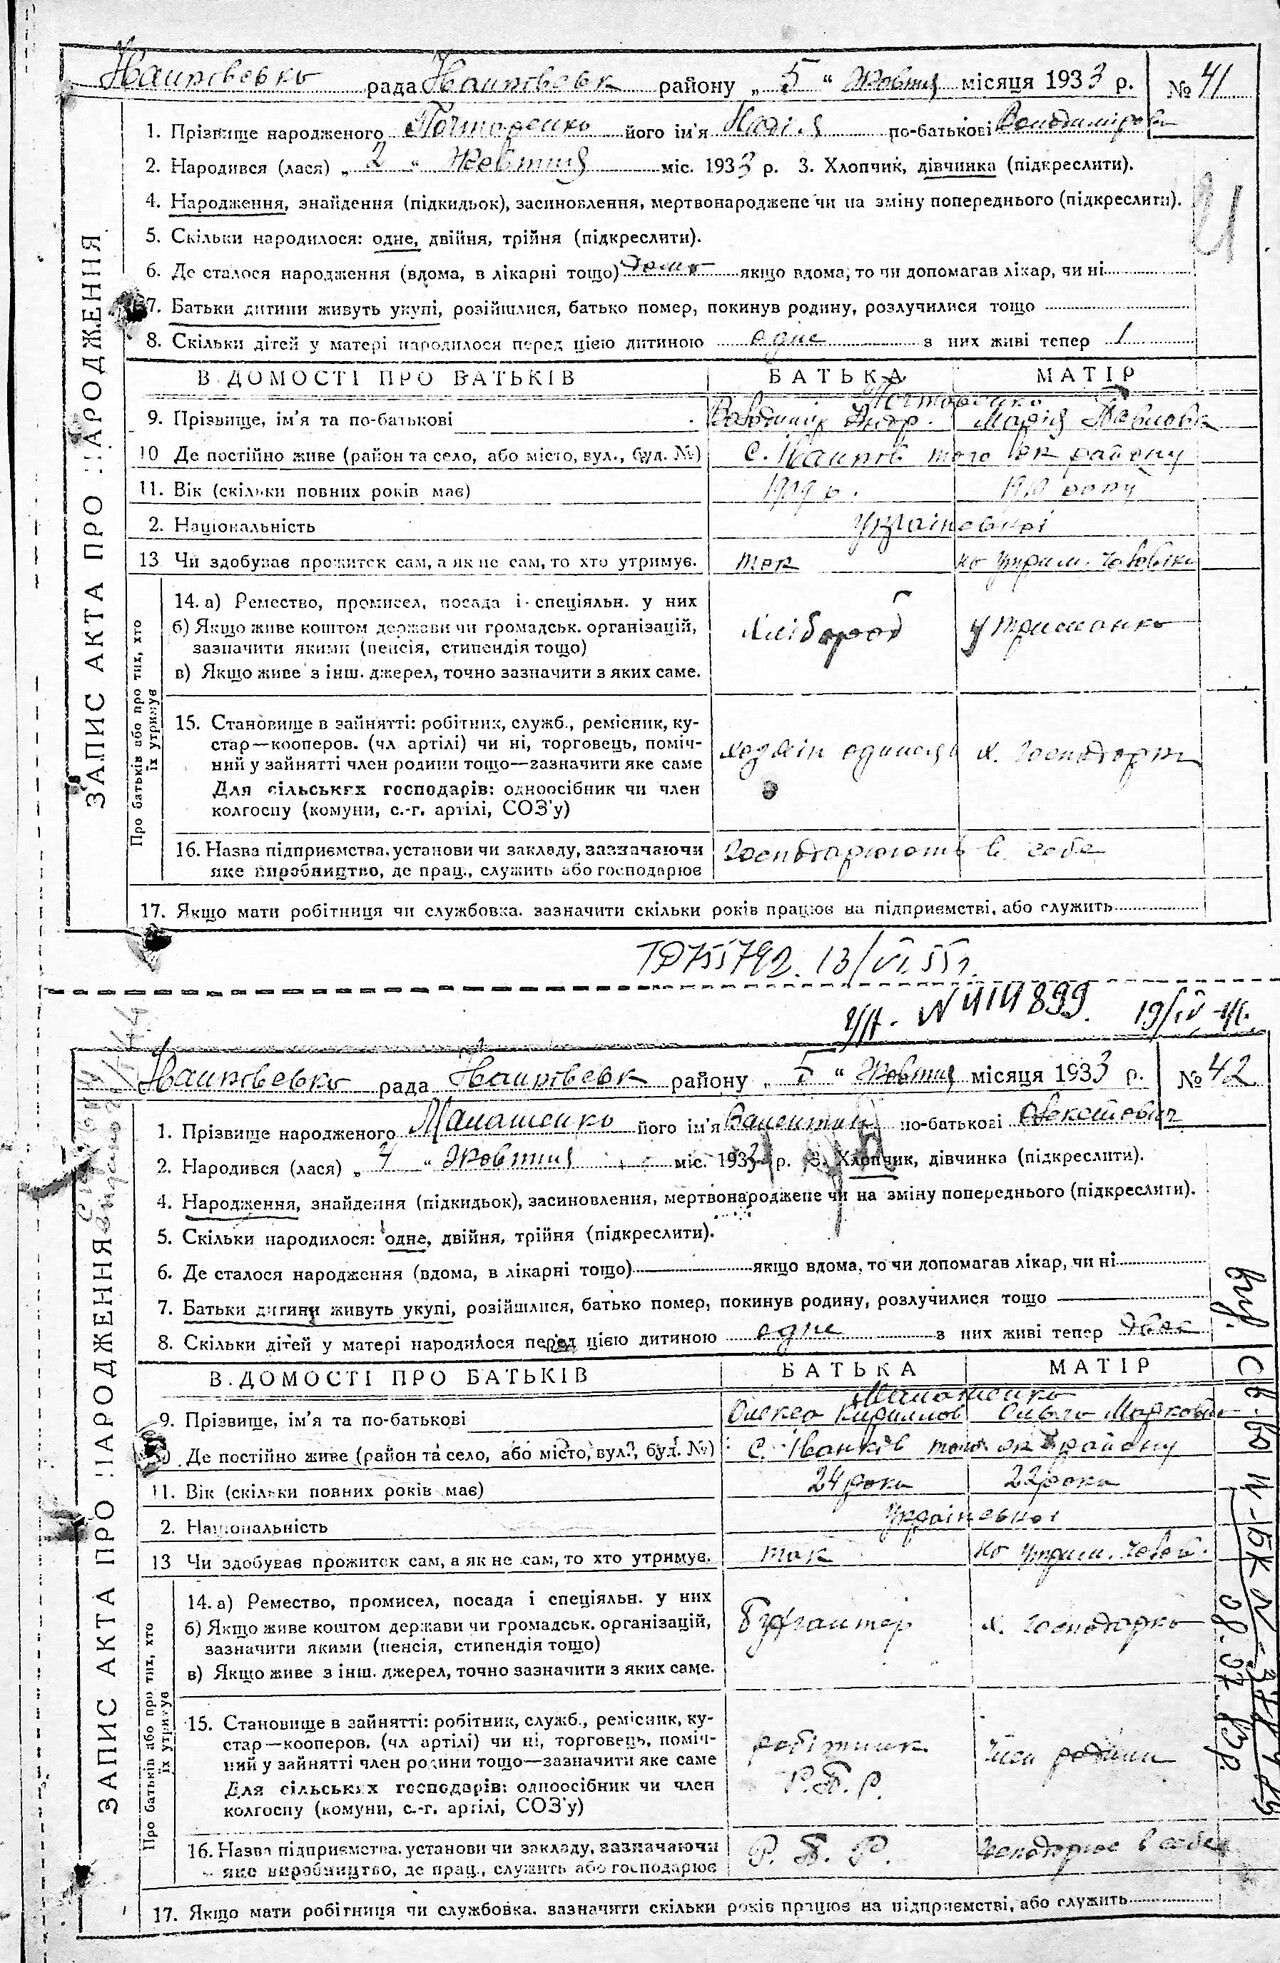 рада району „ 5 “ Жовтня місяця 1933 р. № 41
1. Прізвище народженого його ім'я Надія по-батькові Володимирівна
2. Народився (лася) „ 2 “ Жовтня міс. 1933 р. 3. Хлопчик, дівчинка (підкреслити).
4. Народження, знайдення (підкидьок), засиновлення, мертвонароджене чи на зміну попереднього (підкреслити).
5. Скільки народилося: одне, двійня, трійня (підкреслити).
6. Де сталося народження (вдома, в лікарні тощо) дома якщо вдома, то чи допомагав лікар, чи ні
7. Батьки дитини живуть укупі, розійшлися, батько помер, покинув родину, розлучилися тощо
8. Скільки дітей у матері народилося перед цією дитиною одне з них живі тепер 1
В ДОМОСТІ ПРО БАТЬКІВ БАТЬКА МАТІР
9. Прізвище, ім'я та по-батькові Володимир Андр. Марія Павловна
10 Де постійно живе (район та село, або місто, вул., буд. №) с. Іванків того ж району
11. Вік (скільки повних років має) 1909 р. року
2. Національність Української
13 Чи здобуває прожиток сам, а як не сам, то хто утримує. так на утрим. чоловіка
ЗАПИС АКТА ПРО НАРОДЖЕННЯ
Про батьків або про тих, хто їх утримує
14. а) Ремество, промисел, посада і спеціяльн. у них
б) Якщо живе коштом держави чи громадськ. організацій, хлібороб утриманка
зазначити якими (пенсія, стипендія тощо)
в) Якщо живе з інш. джерел, точно зазначити з яких саме.
15. Становище в зайнятті: робітник, служб., ремісник, ку-
стар—кооперов. (чл артілі) чи ні, торговець, поміч- х. господарк
ний у зайнятті член родини тощо—зазначити яке саме
Для сільських господарів: одноосібник чи член
колгоспу (комуни, с.-г. артілі, СОЗ'у)
16. Назва підприємства, установи чи закладу, зазначаючи господарюють в себе
яке виробництво, де прац., служить або господарює
17. Якщо мати робітниця чи службовка, зазначити скільки років працює на підприємстві, або служить
755792. 13/VI 55 г.
№ 414899. 19/IV
рада району „ 5 “ Жовтня місяця 1933 р. № 42
1. Прізвище народженого Малашенко його ім'я Валентин по-батькові Олексійович
2. Народився (лася) „ 4 “ Жовтня міс. 1933 р. 3. Хлопчик, дівчинка (підкреслити).
4. Народження, знайдення (підкидьок), засиновлення, мертвонароджене чи на зміну попереднього (підкреслити).
5. Скільки народилося: одне, двійня, трійня (підкреслити).
6. Де сталося народження (вдома, в лікарні тощо) якщо вдома, то чи допомагав лікар, чи ні
7. Батьки дитини живуть укупі, розійшлися, батько помер, покинув родину, розлучилися тощо
8. Скільки дітей у матері народилося перед цією дитиною одне з них живі тепер двоє
В ДОМОСТІ ПРО БАТЬКІВ БАТЬКА МАТІР
Малашенко
9. Прізвище, ім'я та по-батькові Олекса Кирилов Ольга Марковна
Де постійно живе (район та село, або місто, вул., буд. №) с. Іванків того ж району
11. Вік (скільки повних років має) 24 роки 22 роки
2. Національність Української
13 Чи здобуває прожиток сам, а як не сам, то хто утримує. так на утрим. чолов.
ЗАПИС АКТА ПРО НАРОДЖЕННЯ
Про батьків або про тих, хто їх утримує
14. а) Ремество, промисел, посада і спеціяльн. у них
б) Якщо живе коштом держави чи громадськ. організацій, Бухгалтер х. господарка
зазначити якими (пенсія, стипендія тощо)
в) Якщо живе з інш. джерел, точно зазначити з яких саме.
15. Становище в зайнятті: робітник, служб., ремісник, ку-
стар—кооперов. (чл артілі) чи ні, торговець, поміч- робітник член родини
ний у зайнятті член родини тощо—зазначити яке саме
Для сільських господарів: одноосібник чи член Р.Б.Р.
колгоспу (комуни, с.-г. артілі, СОЗ'у)
16. Назва підприємства, установи чи закладу, зазначаючи Р. Б. Р. господарює в себе
яке виробництво, де прац., служить або господарює
17. Якщо мати робітниця чи службовка, зазначити скільки років працює на підприємстві, або служить